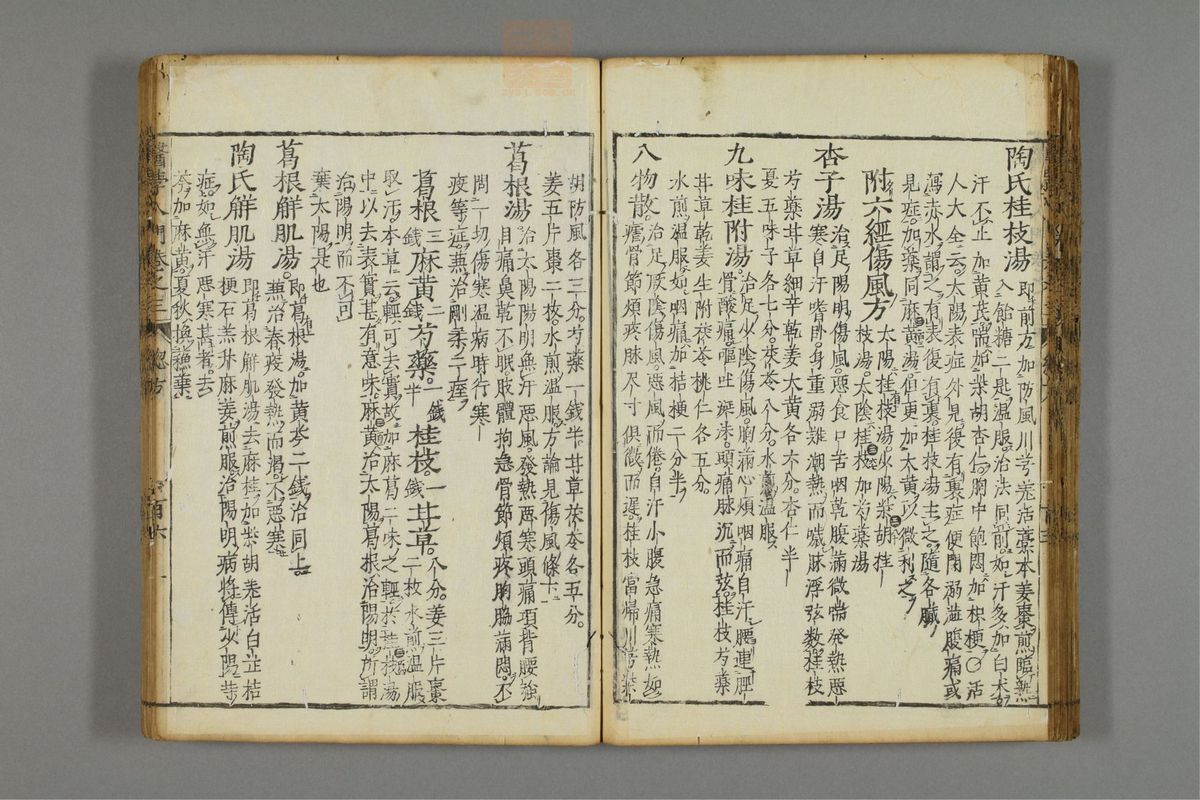 陶氏桂枝湯
即前方加防風川芎羌活藁本姜棗煎臨熱
入飴糖二匙溫服治法同前如汗多加白朮
汗不止加黃芪喘加柴胡杏仁胸中飽悶加枳梗○活
人大全云太陽表症外見復有裏症便閉溺澁腹痛或
瀉赤水謂之有表復有裏桂枝湯主之隨各臟
見症加藥同麻黃湯但更加大黃以微利之
附六經傷風方
太陽桂枝湯少陽柴胡桂
枝湯太陰桂枝加芍藥湯
杏子湯
治足陽明傷風惡食口苦咽乾腹滿微喘發熱惡
寒自汗嗜卧身重弱難潮熱而噦脉浮弦數桂枝
芍藥甘草細辛乾姜大黃各六分杏仁半
夏五味子各七分茯苓八分水煎溫服
九味桂附湯
治足少陰傷風胸滿心煩咽痛自汗腰連脛
骨酸痛嘔吐涎沫頭痛脉沉而弦桂枝芍藥
甘草乾姜生附茯苓桃仁各五分
水煎溫服如咽痛加桔梗二分半
八物散
治足厥陰傷風惡風而倦自汗小腹急痛寒熱如
瘧骨節煩疼脉尺寸俱微而遲桂枝當歸川芎柴
胡防風各三分芍藥一錢半甘草茯苓各五分
姜五片棗二枚水煎溫服方論見傷風條下
葛根湯
治太陽陽明無汗惡風發熱惡寒頭痛項背腰強
目痛鼻乾不眠肢體拘急骨節煩疼胸脇滿悶不
問一切傷寒溫病時行寒
疫等症兼治剛柔二痓
葛根三錢麻黃二錢芍藥一錢半桂枝一錢甘草八分姜三片棗
二枚水煎溫服
取汗本草云輕可去實故加麻葛二味之輕於桂枝湯
中以去表實甚有意味麻黃治太陽葛根治陽明所謂
治陽明而不可
棄太陽是也
葛根解肌湯
即葛根湯加黃芩二錢治同上
兼治春疫發熱而渴不惡寒
陶氏解肌湯
即葛根解肌湯去麻桂加柴胡羌活白芷桔
梗石羔升麻姜煎服治陽明病將傳少陽等
症如無汗惡寒甚者去
芩加麻黃夏秋換蘇葉
醫學入門卷之三
總方